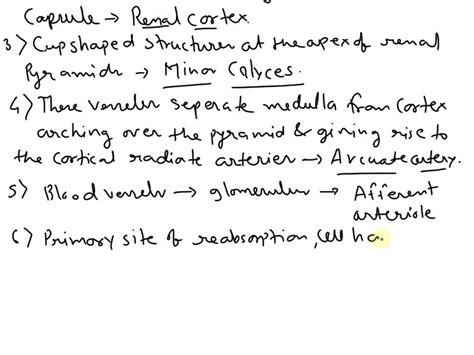 Capsule → Renal cortex.
3) Cup shaped structures at the apex of renal
Pyramids → Minor Calyces.
4) These vessels seperate medulla from cortex
arching over the pyramid & giving rise to
the cortical radiate arteries → Arcuate artery.
5) Blood vessels → glomerulus → Afferent
arteriole
6) Primary site of reabsorption, cell ha